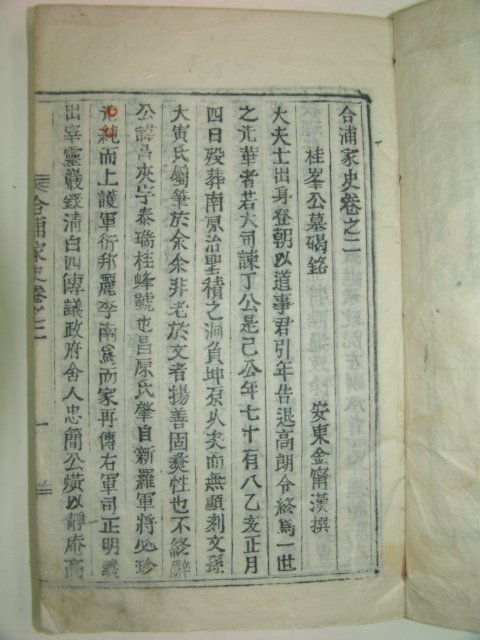 合浦家史卷之二
桂峯公墓碣銘
安東金甯漢撰
大夫士出身登朝以道事君引年告退高朗令終爲一世
之光華者若大司諫丁公是已公年七十有八乙亥正月
四日歿葬南原治聖積之洞負坤原從矣而無顯刻文孫
大寅氏屬筆於余余非老於文者揚善固彜性也不終辭
公諱昌 字泰瑞桂峰號也昌原氏肇自新羅軍將 珍
光純而上護軍衍邦麗季南爲而家再傳右軍司正明義
出宰靈巖錢清白四傳議政府舍人忠簡公熿以靜庵高
合浦家史卷之二 一